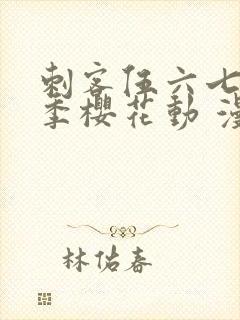 刺客伍六七
季樱花动 漫
林佑春